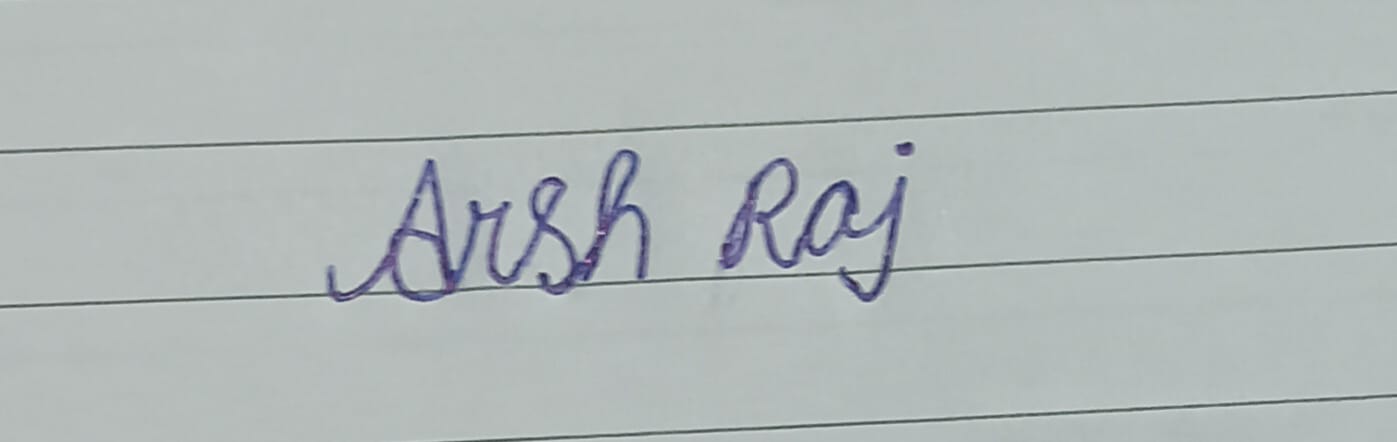 Arsh Raj